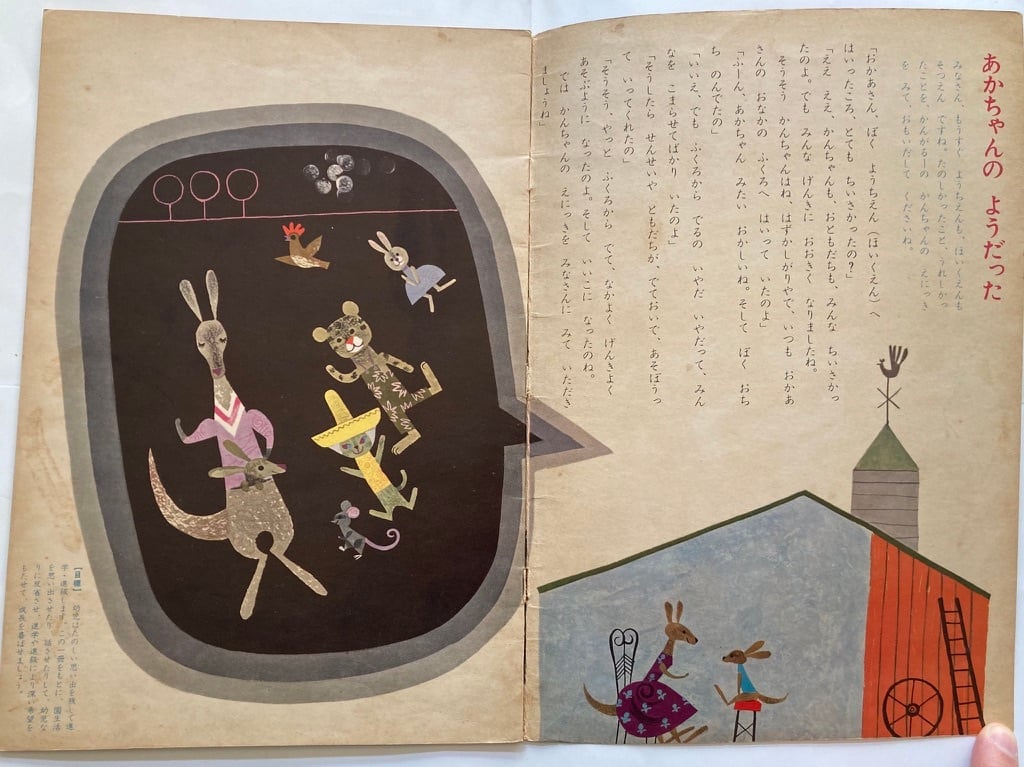 あかちゃんの ようだった
みなさん、もうすぐ ようちえんも、ほいくえんも
そつえん ですね。たのしかったこと、うれしかっ
たことを、かんがるーの かんちゃんの えにっき
を みて、おもいだして くださいね。
「おかあさん、ぼく ようちえん(ほいくえん)へ
はいったころ、とても ちいさかったの?」
「ええ ええ、かんちゃんも、おともだちも、みんな ちいさかっ
たのよ。でも みんな げんきに おおきく なりましたね。
そうそう かんちゃんはね、はずかしがりやで、いつも おかあ
さんの おなかの ふくろへ はいって いたのよ」
「ふーん、あかちゃん みたい、おかしいね。そして ぼく おち
ち のんでたの」
「いいえ、でも ふくろから でるの いやだ いやだって、みん
なを こまらせてばかり いたのよ」
「そうしたら せんせいや ともだちが、でておいで、あそぼうっ
て いってくれたの」
「そうそう、やっと ふくろから でて、なかよく げんきよく
あそぶように なったのよ。そして いいこに なったのね。
では かんちゃんの えにっきを みなさんに みて いただき
ましょうね」
【目標】 幼児はたのしい思い出を残して進
学・進級します。この一冊をもとに、園生活
を思い出させたり、話させたりして、幼児な
りに反省させ、進学や進級により深い希望を
もたせて、成長を喜ばせましょう。